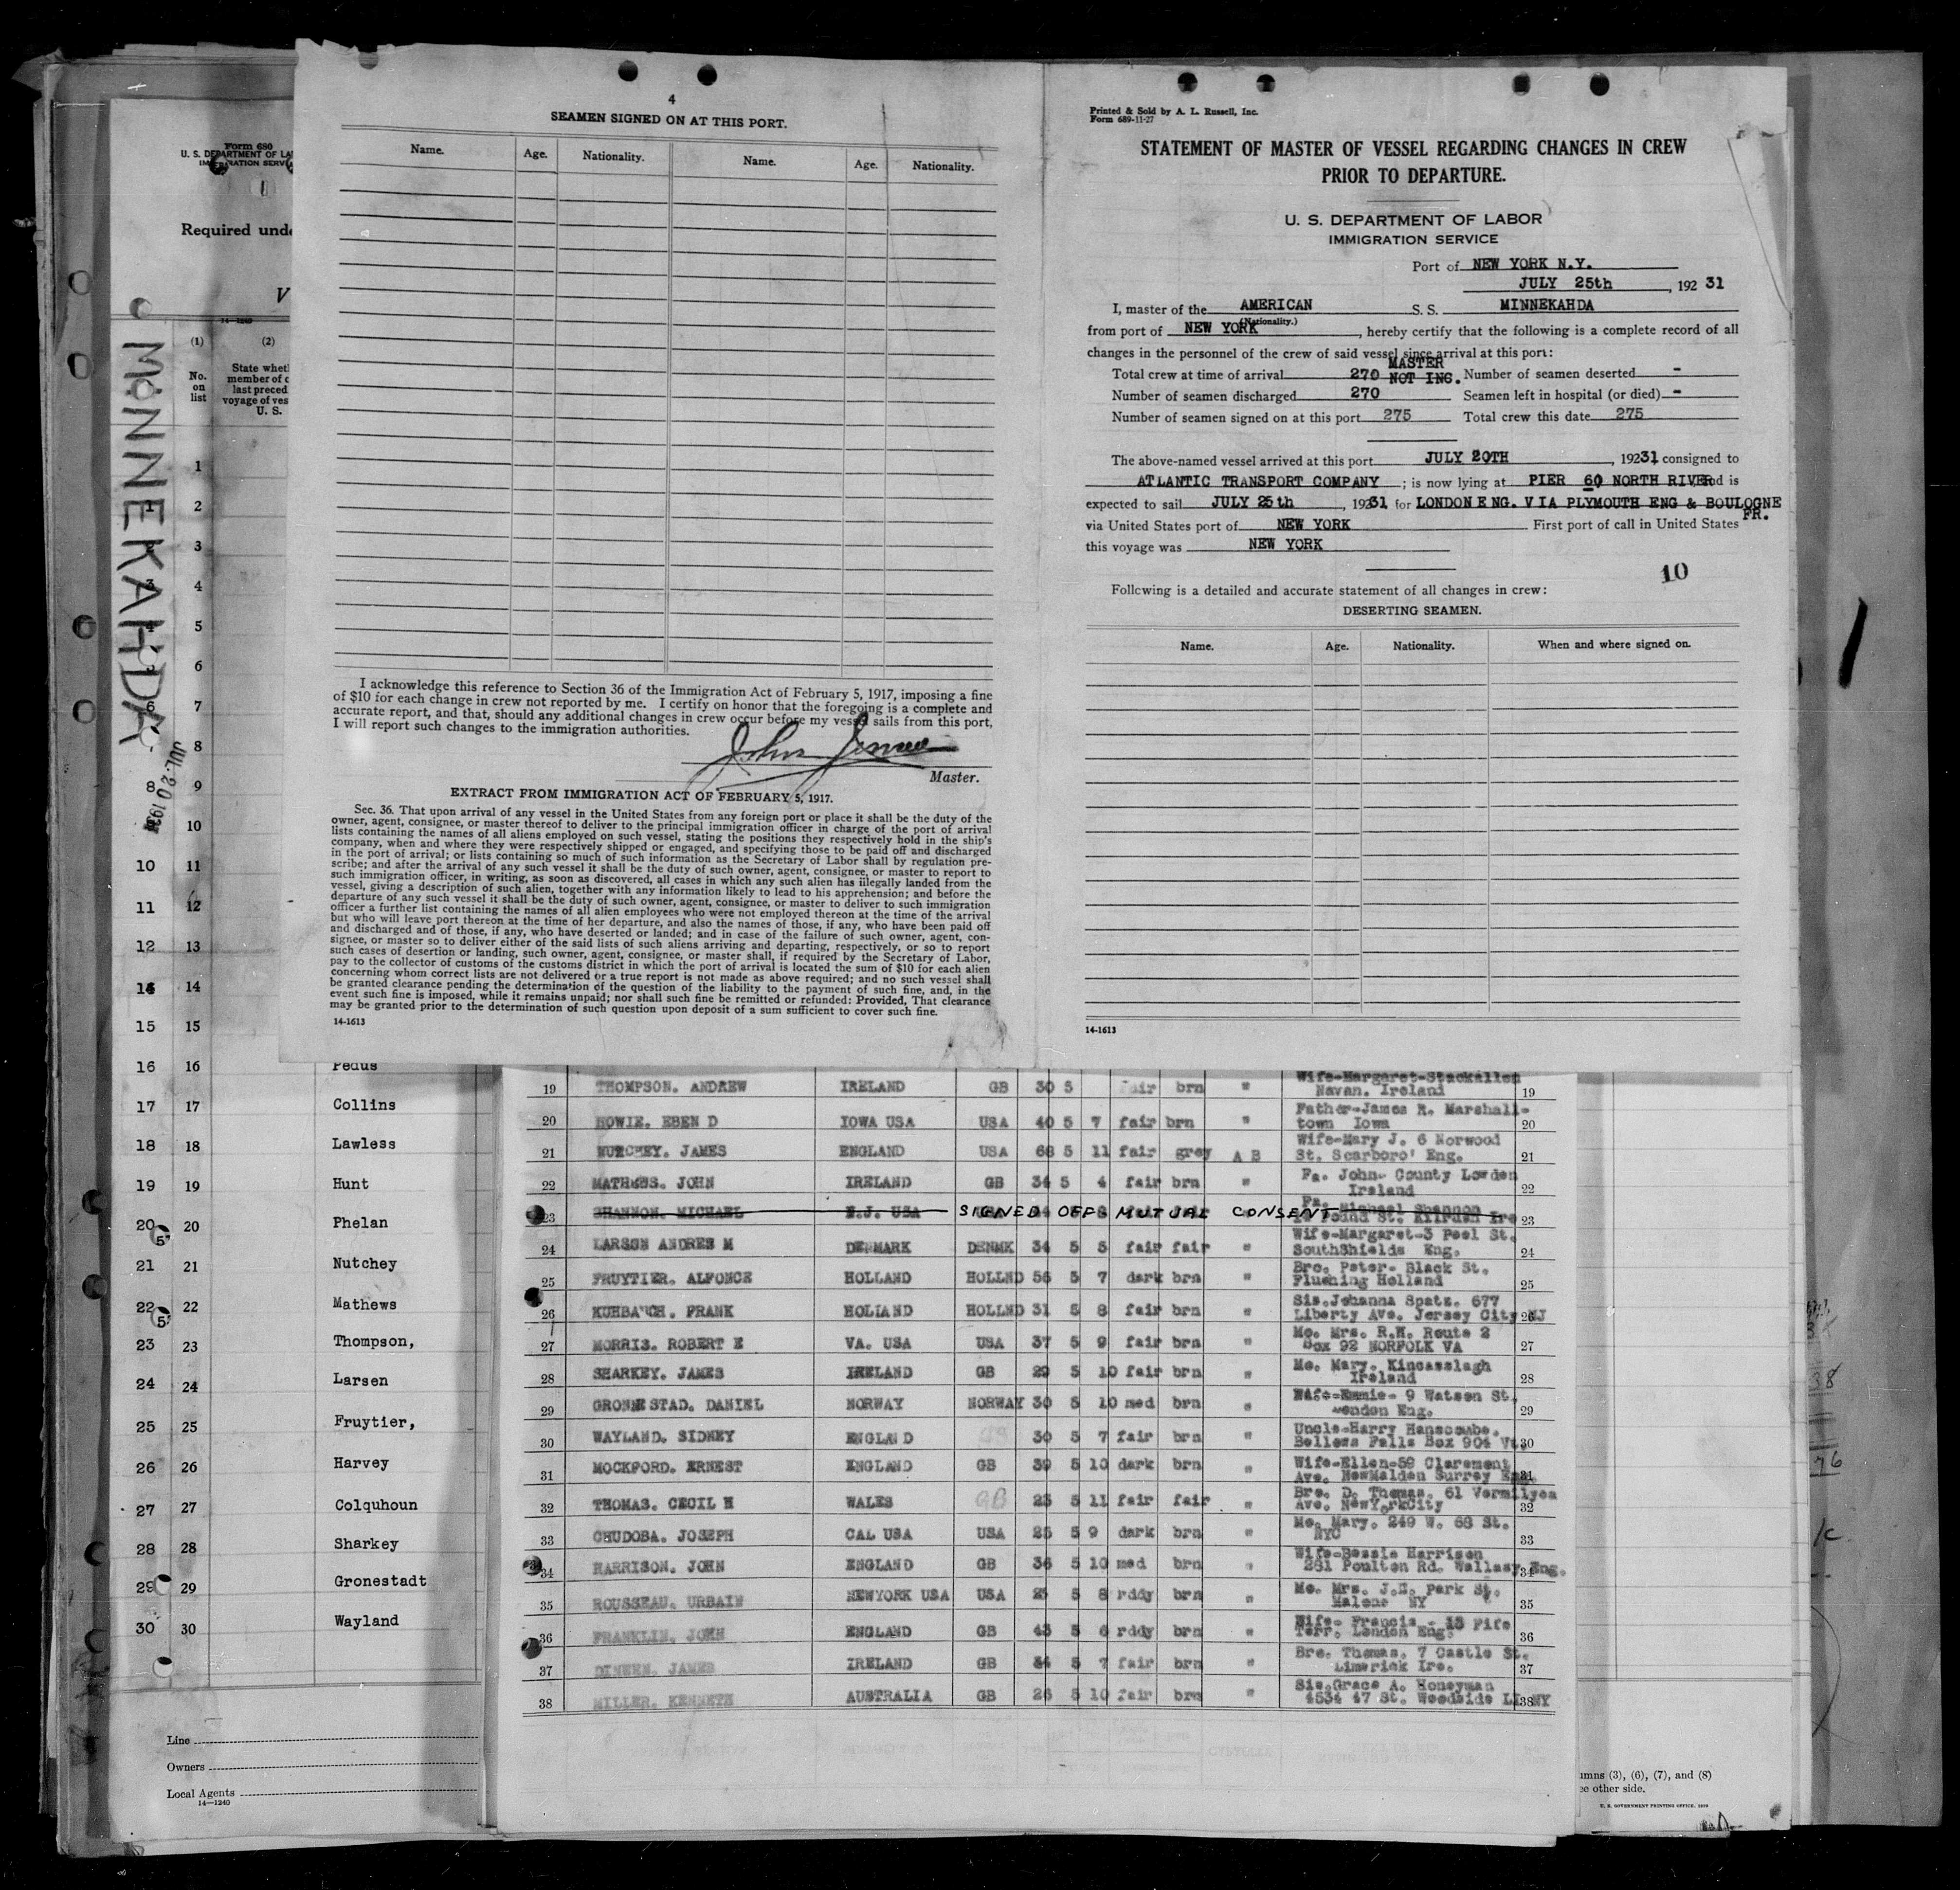 4
SEAMEN SIGNED ON AT THIS PORT.
Name. Age. Nationality. Name. Age. Nationality.
I acknowledge this reference to Section 36 of the Immigration Act of February 5, 1917, imposing a fine
of $10 for each change in crew not reported by me. I certify on honor that the foregoing is a complete and
accurate report, and that, should any additional changes in crew occur before my vessel sails from this port,
I will report such changes to the immigration authorities.
John
Master.
EXTRACT FROM IMMIGRATION ACT OF FEBRUARY 5, 1917.
Sec. 36. That upon arrival of any vessel in the United States from any foreign port or place it shall be the duty of the
owner, agent, consignee, or master thereof to deliver to the principal immigration officer in charge of the port of arrival
lists containing the names of all aliens employed on such vessel, stating the positions they respectively hold in the ship's
company, when and where they were respectively shipped or engaged, and specifying those to be paid off and discharged
in the port of arrival; or lists containing so much of such information as the Secretary of Labor shall by regulation pre-
scribe; and after the arrival of any such vessel it shall be the duty of such owner, agent, consignee, or master to report to
such immigration officer, in writing, as soon as discovered, all cases in which any such alien has illegally landed from the
vessel, giving a description of such alien, together with any information likely to lead to his apprehension; and before the
departure of any such vessel it shall be the duty of such owner, agent, consignee, or master to deliver to such immigration
officer a further list containing the names of all alien employees who were not employed thereon at the time of the arrival
but who will leave port thereon at the time of her departure, and also the names of those, if any, who have been paid off
and discharged and of those, if any, who have deserted or landed; and in case of the failure of such owner, agent, con-
signee, or master so to deliver either of the said lists of such aliens arriving and departing, respectively, or so to report
such cases of desertion or landing, such owner, agent, consignee, or master shall, if required by the Secretary of Labor,
pay to the collector of customs of the customs district in which the port of arrival is located the sum of $10 for each alien
concerning whom correct lists are not delivered or a true report is not made as above required; and no such vessel shall
be granted clearance pending the determination of the question of the liability to the payment of such fine, and, in the
event such fine is imposed, while it remains unpaid; nor shall such fine be remitted or refunded: Provided, That clearance
may be granted prior to the determination of such question upon deposit of a sum sufficient to cover such fine.
14-1613
Printed & Sold by A. L. Russell, Inc.
Form 689-11-27
STATEMENT OF MASTER OF VESSEL REGARDING CHANGES IN CREW
PRIOR TO DEPARTURE.
U. S. DEPARTMENT OF LABOR
IMMIGRATION SERVICE
Port of NEW YORK N.Y.
JULY 25th, 192 31
I, master of the AMERICAN S. S. MINNEKAHDA
(Nationality.)
from port of NEW YORK, hereby certify that the following is a complete record of all
changes in the personnel of the crew of said vessel since arrival at this port:
MASTER
Total crew at time of arrival 270 NOT ING. Number of seamen deserted -
Number of seamen discharged 270 Seamen left in hospital (or died) -
Number of seamen signed on at this port 275 Total crew this date 275
The above-named vessel arrived at this port JULY 20TH, 19231, consigned to
ATLANTIC TRANSPORT COMPANY; is now lying at PIER 60 NORTH RIVER and is
expected to sail JULY 25th, 19231 for LONDON ENG. VIA PLYMOUTH ENG & BOULOGNE
FR.
via United States port of NEW YORK First port of call in United States
this voyage was NEW YORK
10
Following is a detailed and accurate statement of all changes in crew:
DESERTING SEAMEN.
Name. Age. Nationality. When and where signed on.
14-1613
Form 680
U. S. DEPARTMENT OF LA
IMMIGRATION SERV
Required unde
V
14-1240
(1) (2)
No. on list
State whet
member of c
last preced
voyage of ves
U. S.
MINNEKAHDA
JUL 20 1931
1
1 2
3
3 4
4 5
5 6
6 7
8
8 9
10
10 11
11 12
12 13
14 14
15 15
16 16 Pedus
17 17 Collins
18 18 Lawless
19 19 Hunt
20 20 Phelan
21 21 Nutchey
22 22 Mathews
23 23 Thompson,
24 24 Larsen
25 25 Fruytier,
26 26 Harvey
27 27 Colquhoun
28 28 Sharkey
29 29 Gronestadt
30 30 Wayland
Line
Owners
Local Agents
14-1240
19 THOMPSON. ANDREW IRELAND GB 30 5 fair brn " Wife-Margaret-Stackallen Navan. Ireland 19
20 HOWIE. EBEN D IOWA USA USA 40 5 7 fair brn " Father-James R. Marshall-town Iowa 20
21 NUTCHEY. JAMES ENGLAND USA 68 5 11 fair grey A B Wife-Mary J. 6 Norwood St. Scarboro' Eng. 21
22 MATHEWS. JOHN IRELAND GB 34 5 4 fair brn " Fa. John- County Lowden Ireland 22
23 SHANNON. MICHAEL N.J. USA SIGNED OFF MUTUAL CONSENT Fa. Michael Shannon 23
24 LARSON ANDRES M DENMARK DENMK 34 5 5 fair fair " Wife-Margaret-3 Peel St. SouthShields Eng. 24
25 FRUYTIER. ALFONCE HOLLAND HOLLND 56 5 7 dark brn " Bro. Peter- Black St. Flushing Holland 25
26 KUHBAUCH. FRANK HOLLAND HOLLND 31 5 8 fair brn " Sis.Johanna Spatz. 677 Liberty Ave. Jersey City NJ 26
27 MORRIS. ROBERT E VA. USA USA 37 5 9 fair brn " Mo. Mrs. R.H. Route 2 Box 92 NORFOLK VA 27
28 SHARKEY. JAMES IRELAND GB 29 5 10 fair brn " Mo. Mary. Kincasslagh Ireland 28
29 GRONNESTAD. DANIEL NORWAY NORWAY 30 5 10 med brn " Wife-Emmie- 9 Watson St. London Eng. 29
30 WAYLAND. SIDNEY ENGLAND 30 5 7 fair brn " Uncle-Harry Hanscombe. Bellows Falls Box 904 Vt. 30
31 MOCKFORD. ERNEST ENGLAND GB 39 5 10 dark brn " Wife-Ellen-59 Claremont Ave. NewMalden Surrey Eng. 31
32 THOMAS. CECIL H WALES GB 25 5 11 fair fair " Bro. D. Thomas. 61 Vermilyea Ave. NewYorkCity 32
33 CHUDOBA. JOSEPH CAL USA USA 25 5 9 dark brn " Mo. Mary. 249 W. 68 St. NYC 33
34 HARRISON. JOHN ENGLAND GB 36 5 10 med brn " Wife-Bessie Harrison 281 Poulton Rd. Wallasy. Eng. 34
35 ROUSSEAU. URBAIN NEWYORK USA USA 25 5 8 rddy brn " Mo. Mrs. J.N. Park St. Malone NY 35
36 FRANKLIN. JOHN ENGLAND GB 43 5 6 rddy brn " Wife- Francis - 13 Fife Terr. London Eng. 36
37 DINNEN. JAMES IRELAND GB 34 5 7 fair brn " Bro. Thomas. 7 Castle St. Limerick Ire. 37
38 MILLER. KENNETH AUSTRALIA GB 26 5 10 fair brn " Sis.Grace A. Honeyman 4534 47 St. Woodside LI NY 38
umns (3), (6), (7), and (8)
ee other side.
U. S. GOVERNMENT PRINTING OFFICE